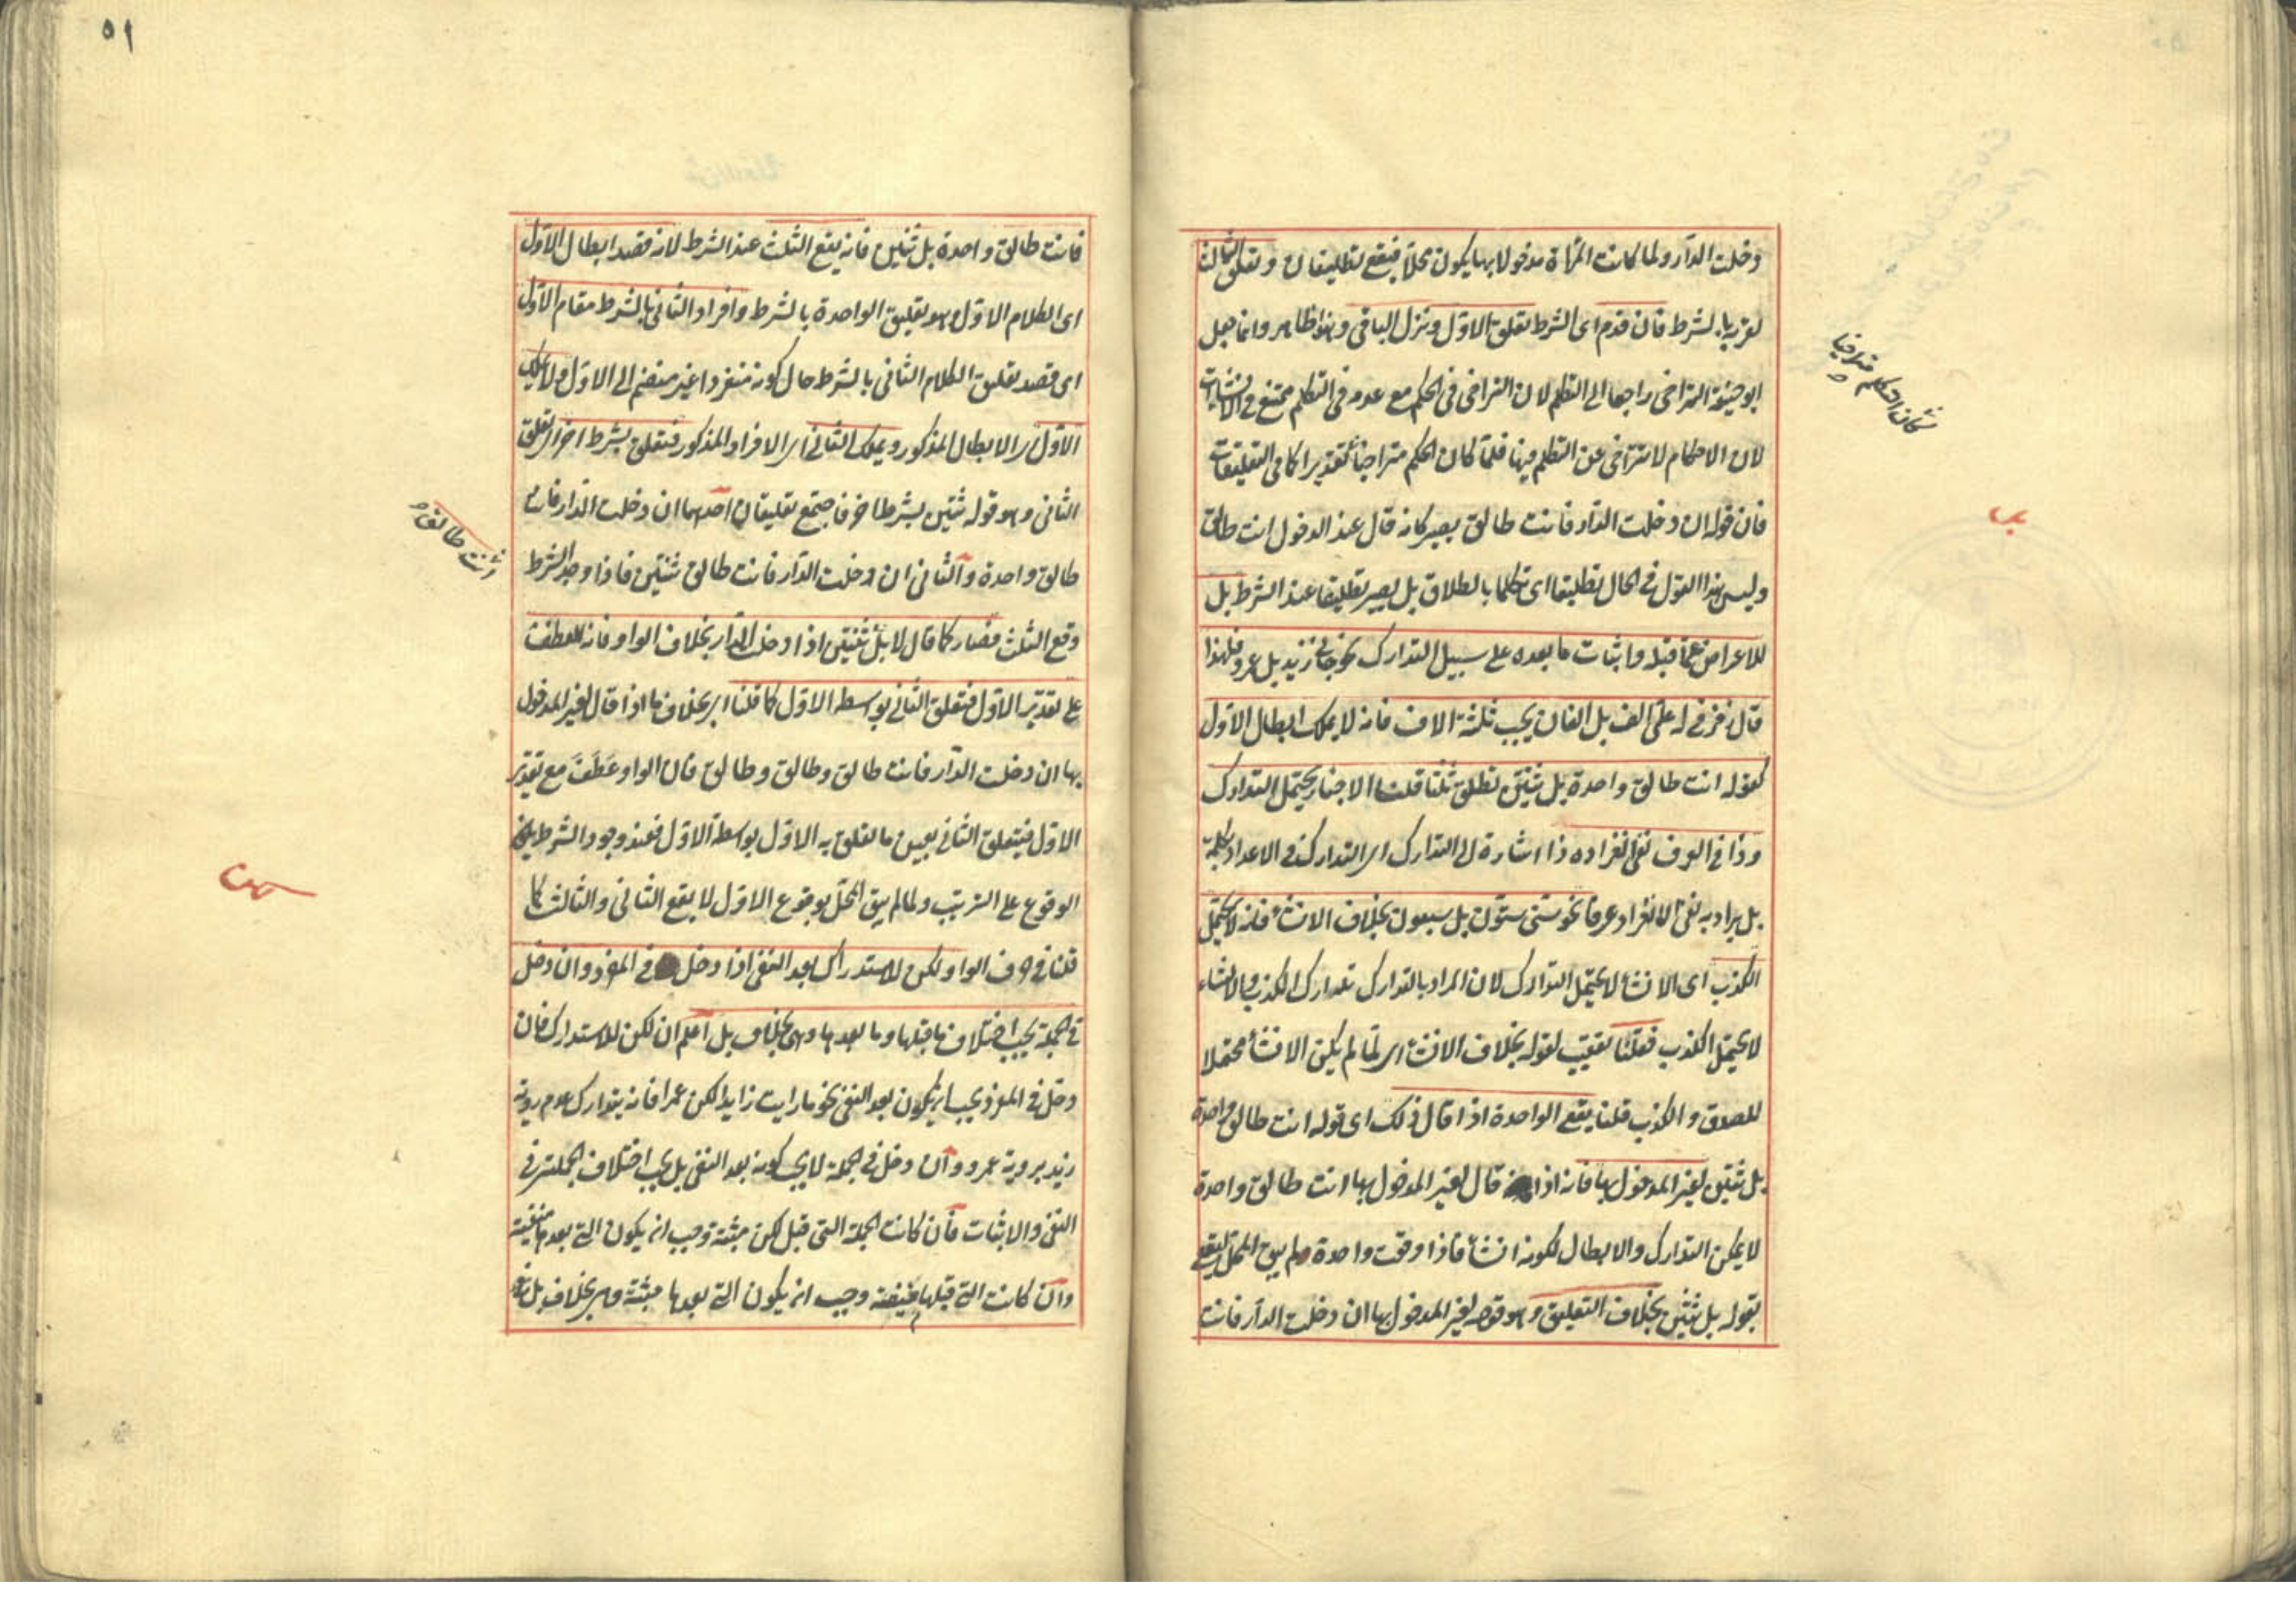 دخلت الدار ولما كانت المرأة مدخولا بها يكون محلا فيقع تطليقان وتعلق الثالث
لقربه بالشرط فان قدم اى الشرط تعلق الاول ونزل الباقى وهذا ظاهر وانما جعل
ابو حنيفة التراخى راجعا الى التكلم لان التراخى فى الحكم مع عدمه فى التكلم ممتنع فى الانشاآت
لان الاحكام لا تتراخى عن التكلم فيها فلما كان الحكم متراخيا تقديرا كما فى التعليقات
فان قوله ان دخلت الدار فانت طالق يصير كانه قال عند الدخول انت طالق
وليس هذا القول فى الحال تطليقا اى تكلما بالطلاق بل يصير تطليقا عند الشرط بل
للاعراض عما قبله واثبات ما بعده على سبيل التدارك نحو جاءنى زيد بل عمرو فلهذا
قال زفر فى له على الف بل الفان يجب ثلثة الاف فانه لا يملك ابطال الاول
كقوله انت طالق واحدة بل ثنتين تطلق ثلثا قلنا الاخبار يحتمل التدارك
وذا فى العرف نفى انفراده ذا اشارة الى التدارك اى التدارك فى الاعداد بكلمة
بل يراد به نفى الانفراد عرفا نحو سنى ستون بل سبعون بخلاف الانشأ فانه لا يحتمل
الكذب اى الانشأ لا يحتمل التدارك لان المراد بالتدارك تدارك الكذب والانشاء
لا يحتمل الكذب فقلنا تعقيب لقوله بخلاف الانشأ اى لما لم يكن الانشأ محتملا
للصدق والكذب قلنا يقع الواحدة اذا قال ذلك اى قوله انت طالق واحدة
بل ثنتين لغير المدخول بها فانه اذا قال لغير المدخول بها انت طالق واحدة
لا يمكن التدارك والابطال لكونه انشأ فاذا وقعت واحدة لم يبق المحل ليقع
بقوله بل ثنتين بخلاف التعليق وهو قوله لغير المدخول بها ان دخلت الدار فانت
كان الحكم متراخيا
فانت طالق واحدة بل ثنتين فانه يقع الثلث عند الشرط لانه قصد ابطال الاول
اى الكلام الاول وهو تعليق الواحدة بالشرط وافراد الثانى بالشرط مقام الاول
اى قصد تعليق الكلام الثانى بالشرط حال كونه منفردا غير منضم الى الاول ولا يملك
الاول اى الابطال المذكور ويملك الثانى اى الافراد المذكور فتعلق بشرط اخر اى تعلق
الثانى وهو قوله ثنتين بشرط اخر فاجتمع تعليقان احدهما ان دخلت الدار فانت
طالق واحدة والثانى ان دخلت الدار فانت طالق ثنتين فاذا وجد الشرط
وقع الثلث فصار كما قال لا بل ثنتين اذا دخلت الدار بخلاف الواو فانه للعطف
على تقدير الاول فتعلق الثانى بواسطة الاول كما قلنا اى بخلاف ما اذا قال لغير المدخول
بها ان دخلت الدار فانت طالق وطالق وطالق فان الواو عطف مع تقدير
الاول فيتعلق الثانى بعين ما تعلق به الاول بواسطة الاول فعند وجود الشرط يكون
الوقوع على الترتيب ولما لم يبق المحل بوقوع الاول لا يقع الثانى والثالث كما
قلنا فى حرف الواو لكن للاستدراك بعد النفى اذا دخل فى المفرد وان دخل
فى الجملة يجب اختلاف ما قبلها وما بعدها وهى بخلاف بل اعلم ان لكن للاستدراك فان
دخل فى المفرد يجب ان يكون بعد النفى نحو ما رايت زايدا لكن عمرا فانه يتدارك عدم روية
زيد بروية عمرو وان دخل فى الجملة لا يجب كونه بعد النفى بل يجب اختلاف الجملتين فى
النفى والاثبات فان كانت الجملة التى قبل لكن مثبتة وجب ان يكون التى بعدها منفية
وان كانت التى قبلها منفية وجب ان يكون التى بعدها مثبتة وهى بخلاف بل
انت طالق
٥١